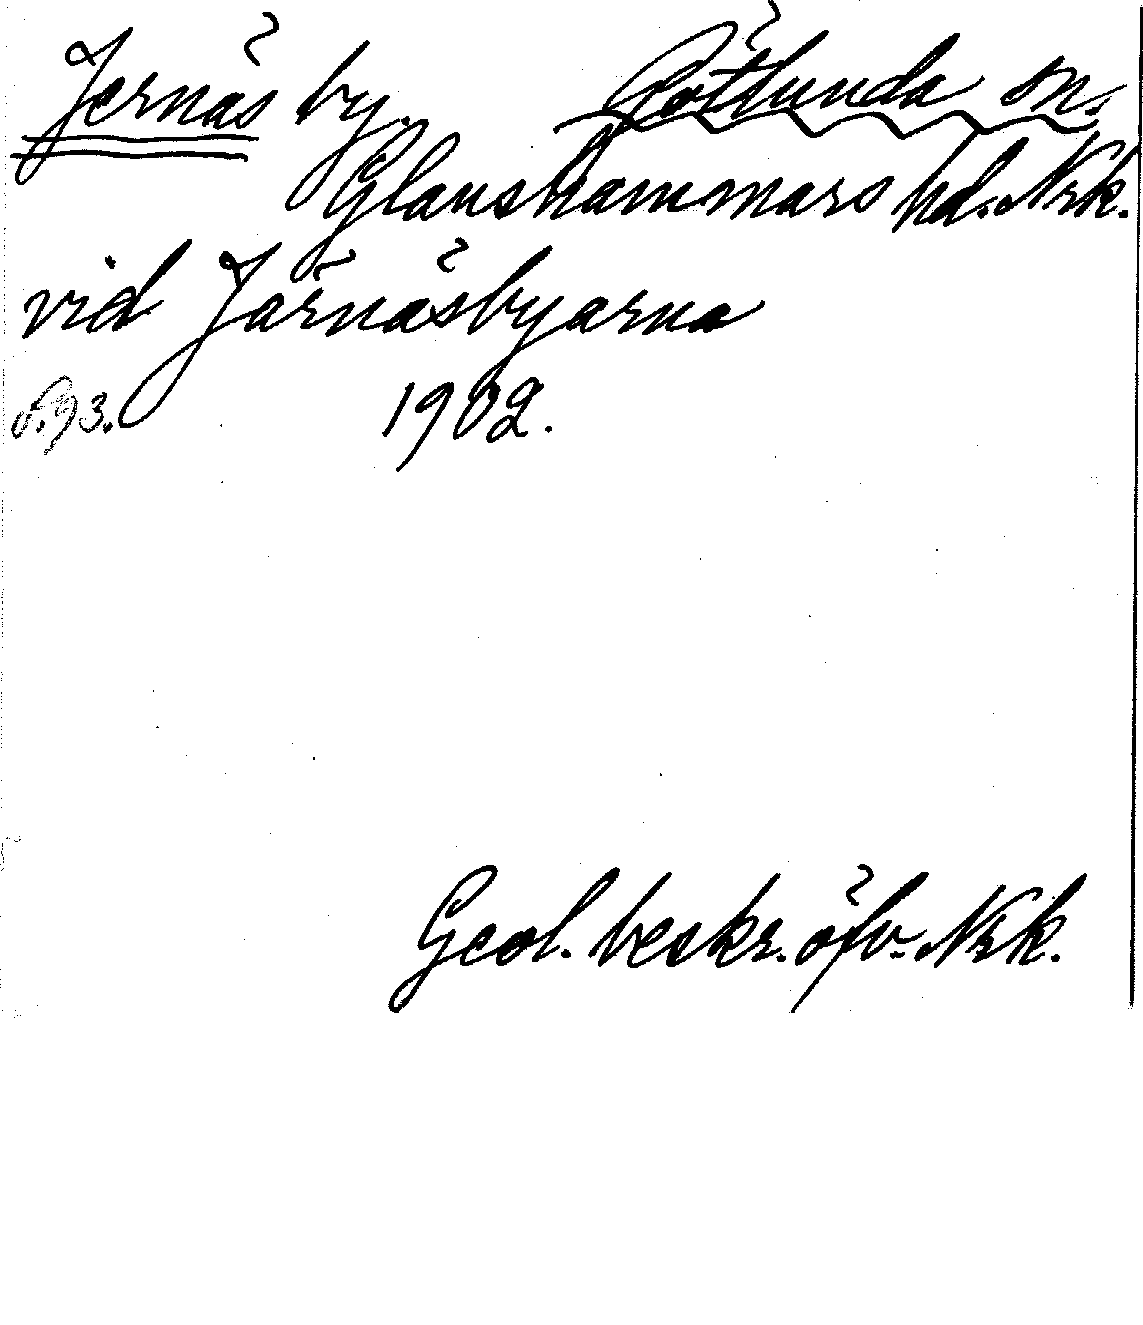 Jernäs by. Götlunda sn.
Glanshammars hd. Nrk.
vid Järnäsbyarna
s. 93. 1902.
Geol. beskr. öfv. Nrk.